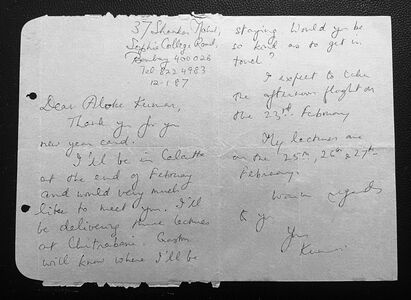 37 Shanker Mahal,
Sophia College Road,
Bombay 400026
Tel 822 4983
12-1-87
Dear Aloke Kumar,
Thank you for your
new year card.
I'll be in Calcutta
at the end of February
and would very much
like to meet you. I'll
be delivering three lectures
at Chitrabani. Gaston
will know where I'll be
staying. Would you be
so kind as to get in
touch?
I expect to take
the afternoon flight on
the 23rd February
My lectures are
on the 25th, 26th & 27th
February.
Warm regards
to you
Yours